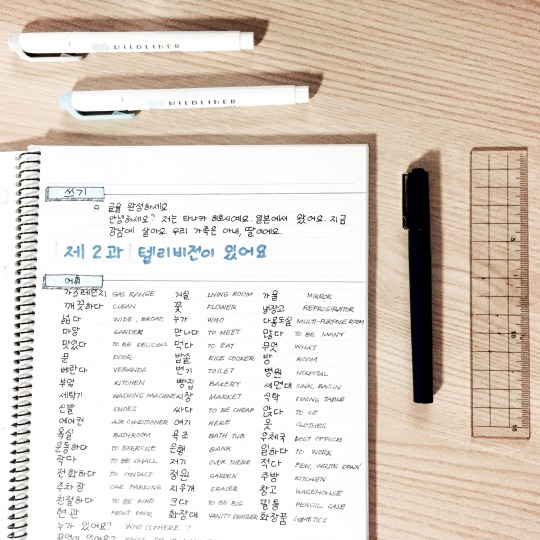 MILDLINER
MILDLINER
쓰기
글을 완성하세요
안녕하세요? 저는 타나카 히로시예요. 일본에서 왔어요. 지금
강남에 살아요. 우리 가족은 아내, 딸이에요.
제 2과 텔리비전이 있어요
어휘
가스레인지 GAS RANGE 거실 LIVING ROOM 거울 MIRROR
깨끗하다 CLEAN 꽃 FLOWER 냉장고 REFRIGIRATOR
넓다 WIDE, BROAD 누가 WHO 다용도실 MULTI-PURPOSE ROOM
마당 GARDEN 만나다 TO MEET 많다 TO BE MANY
맛있다 TO BE DELICIOUS 먹다 TO EAT 무엇 WHAT
문 DOOR 밥솥 RICE COOKER 방 ROOM
베란다 VERANDA 변기 TOILET 병원 HOSPITAL
부엌 KITCHEN 빵집 BAKERY 세면대 SINK, BASIN
세탁기 WASHING MACHINE 시장 MARKET 식탁 DINING TABLE
신발 SHOES 싸다 TO BE CHEAP 앉다 TO SIT
에어컨 AIR CONDITIONER 여기 HERE 옷 CLOTHES
욕실 BATHROOM 욕조 BATH TUB 우체국 POST OFFICE
운동하다 TO EXERCISE 은행 BANK 일하다 TO WORK
작다 TO BE SMALL 저기 OVER THERE 적다 FEW, WRITE DOWN
전화하다 TO CONTACT 정원 GARDEN 주방 KITCHEN
주차장 CAR PARKING 지우개 ERASER 창고 WAREHOUSE
친절하다 TO BE KIND 크다 TO BE BIG 필통 PENCIL CASE
현관 FRONT DOOR 화장대 VANITY DRESSER 화장품 COMETICS
누가 있어요? WHO IS THERE?
무엇이 있어요?
5
10
15